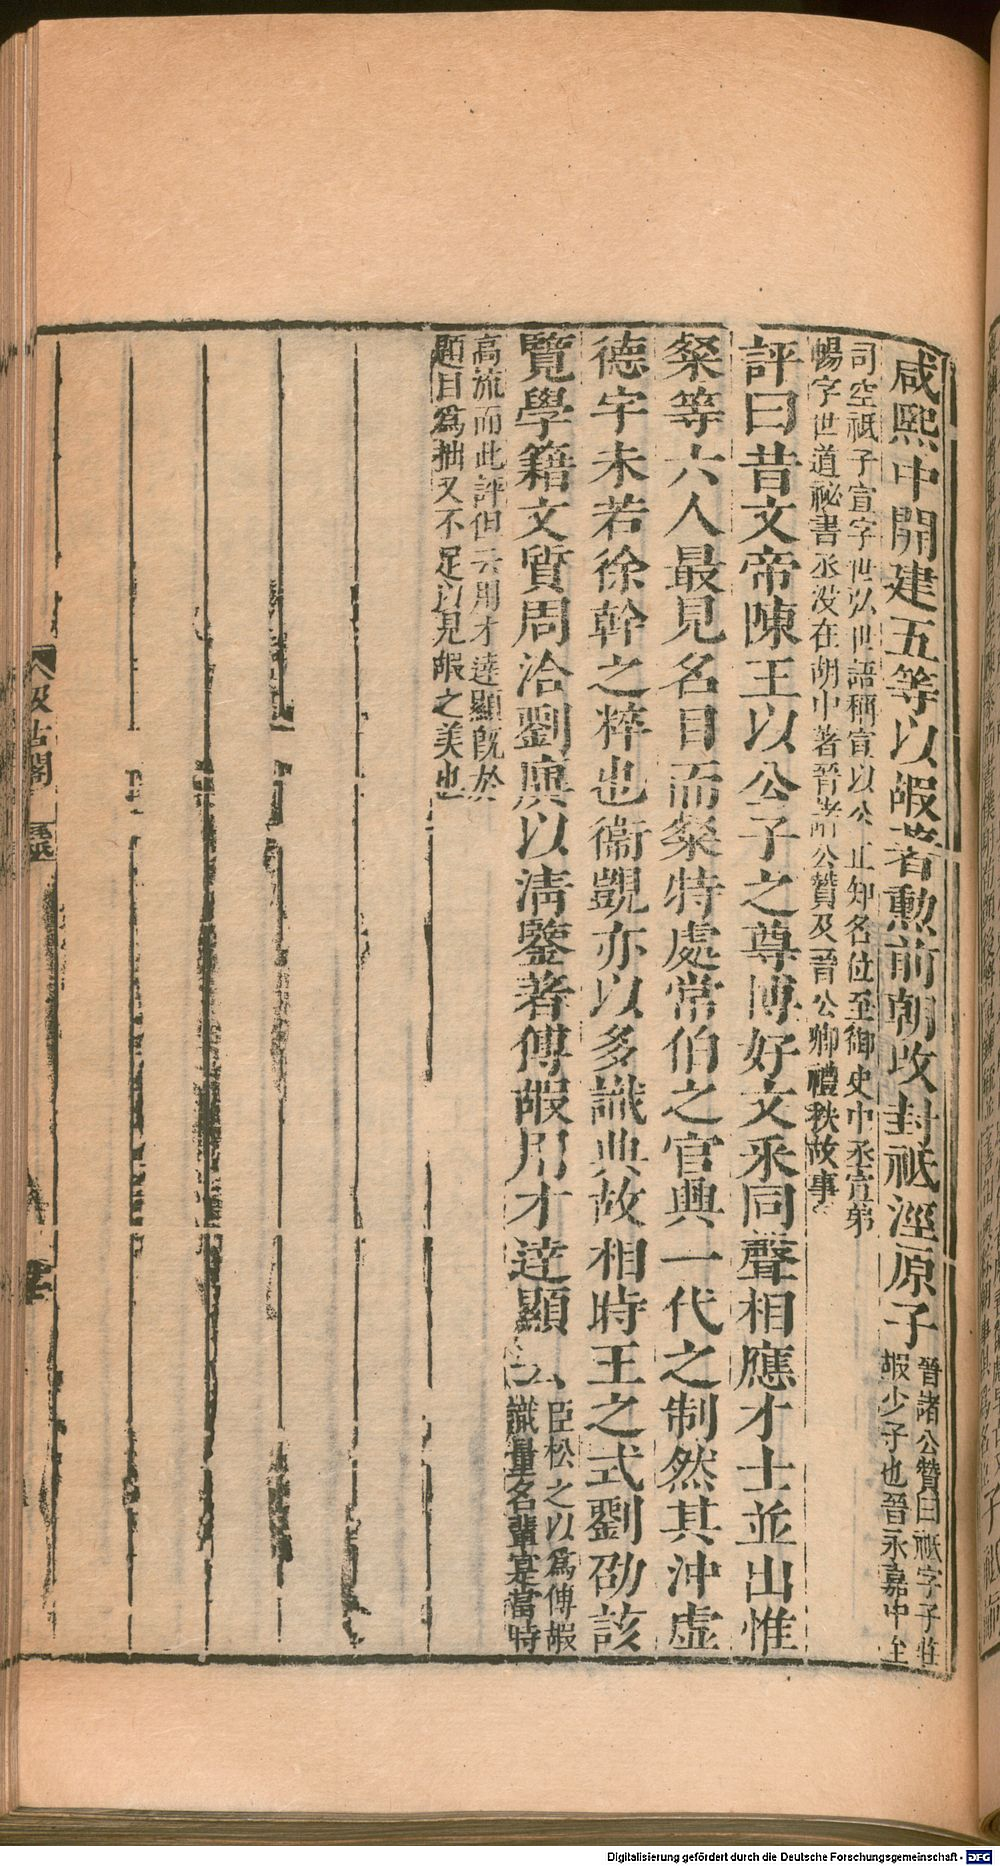 咸熙中開建五等以嘏著勲前朝攺封祗涇原子
晉諸公贊曰祗字子莊
嘏少子也晉永嘉中至
司空祗子宣字世弘世語稱宣以公正知名位至御史中丞宣弟
暢字世道祕書丞没在胡中著晉諸公贊及晉公卿禮秩故事
評曰昔文帝陳王以公子之尊博好文采同聲相應才士並出惟
粲等六人最見名目而粲特處常伯之官興一代之制然其沖虛
德宇未若徐幹之粹也衞覬亦以多識典故相時王之式劉劭該
覽學籍文質周洽劉廙以淸鑒著傅嘏用才達顯云
臣松之以爲傅嘏
識量名輩寔當時
高流而此評但云用才達顯旣於
題目爲拙又不足以見嘏之美也
汲古閣
Digitalisierung gefördert durch die Deutsche Forschungsgemeinschaft - DFG